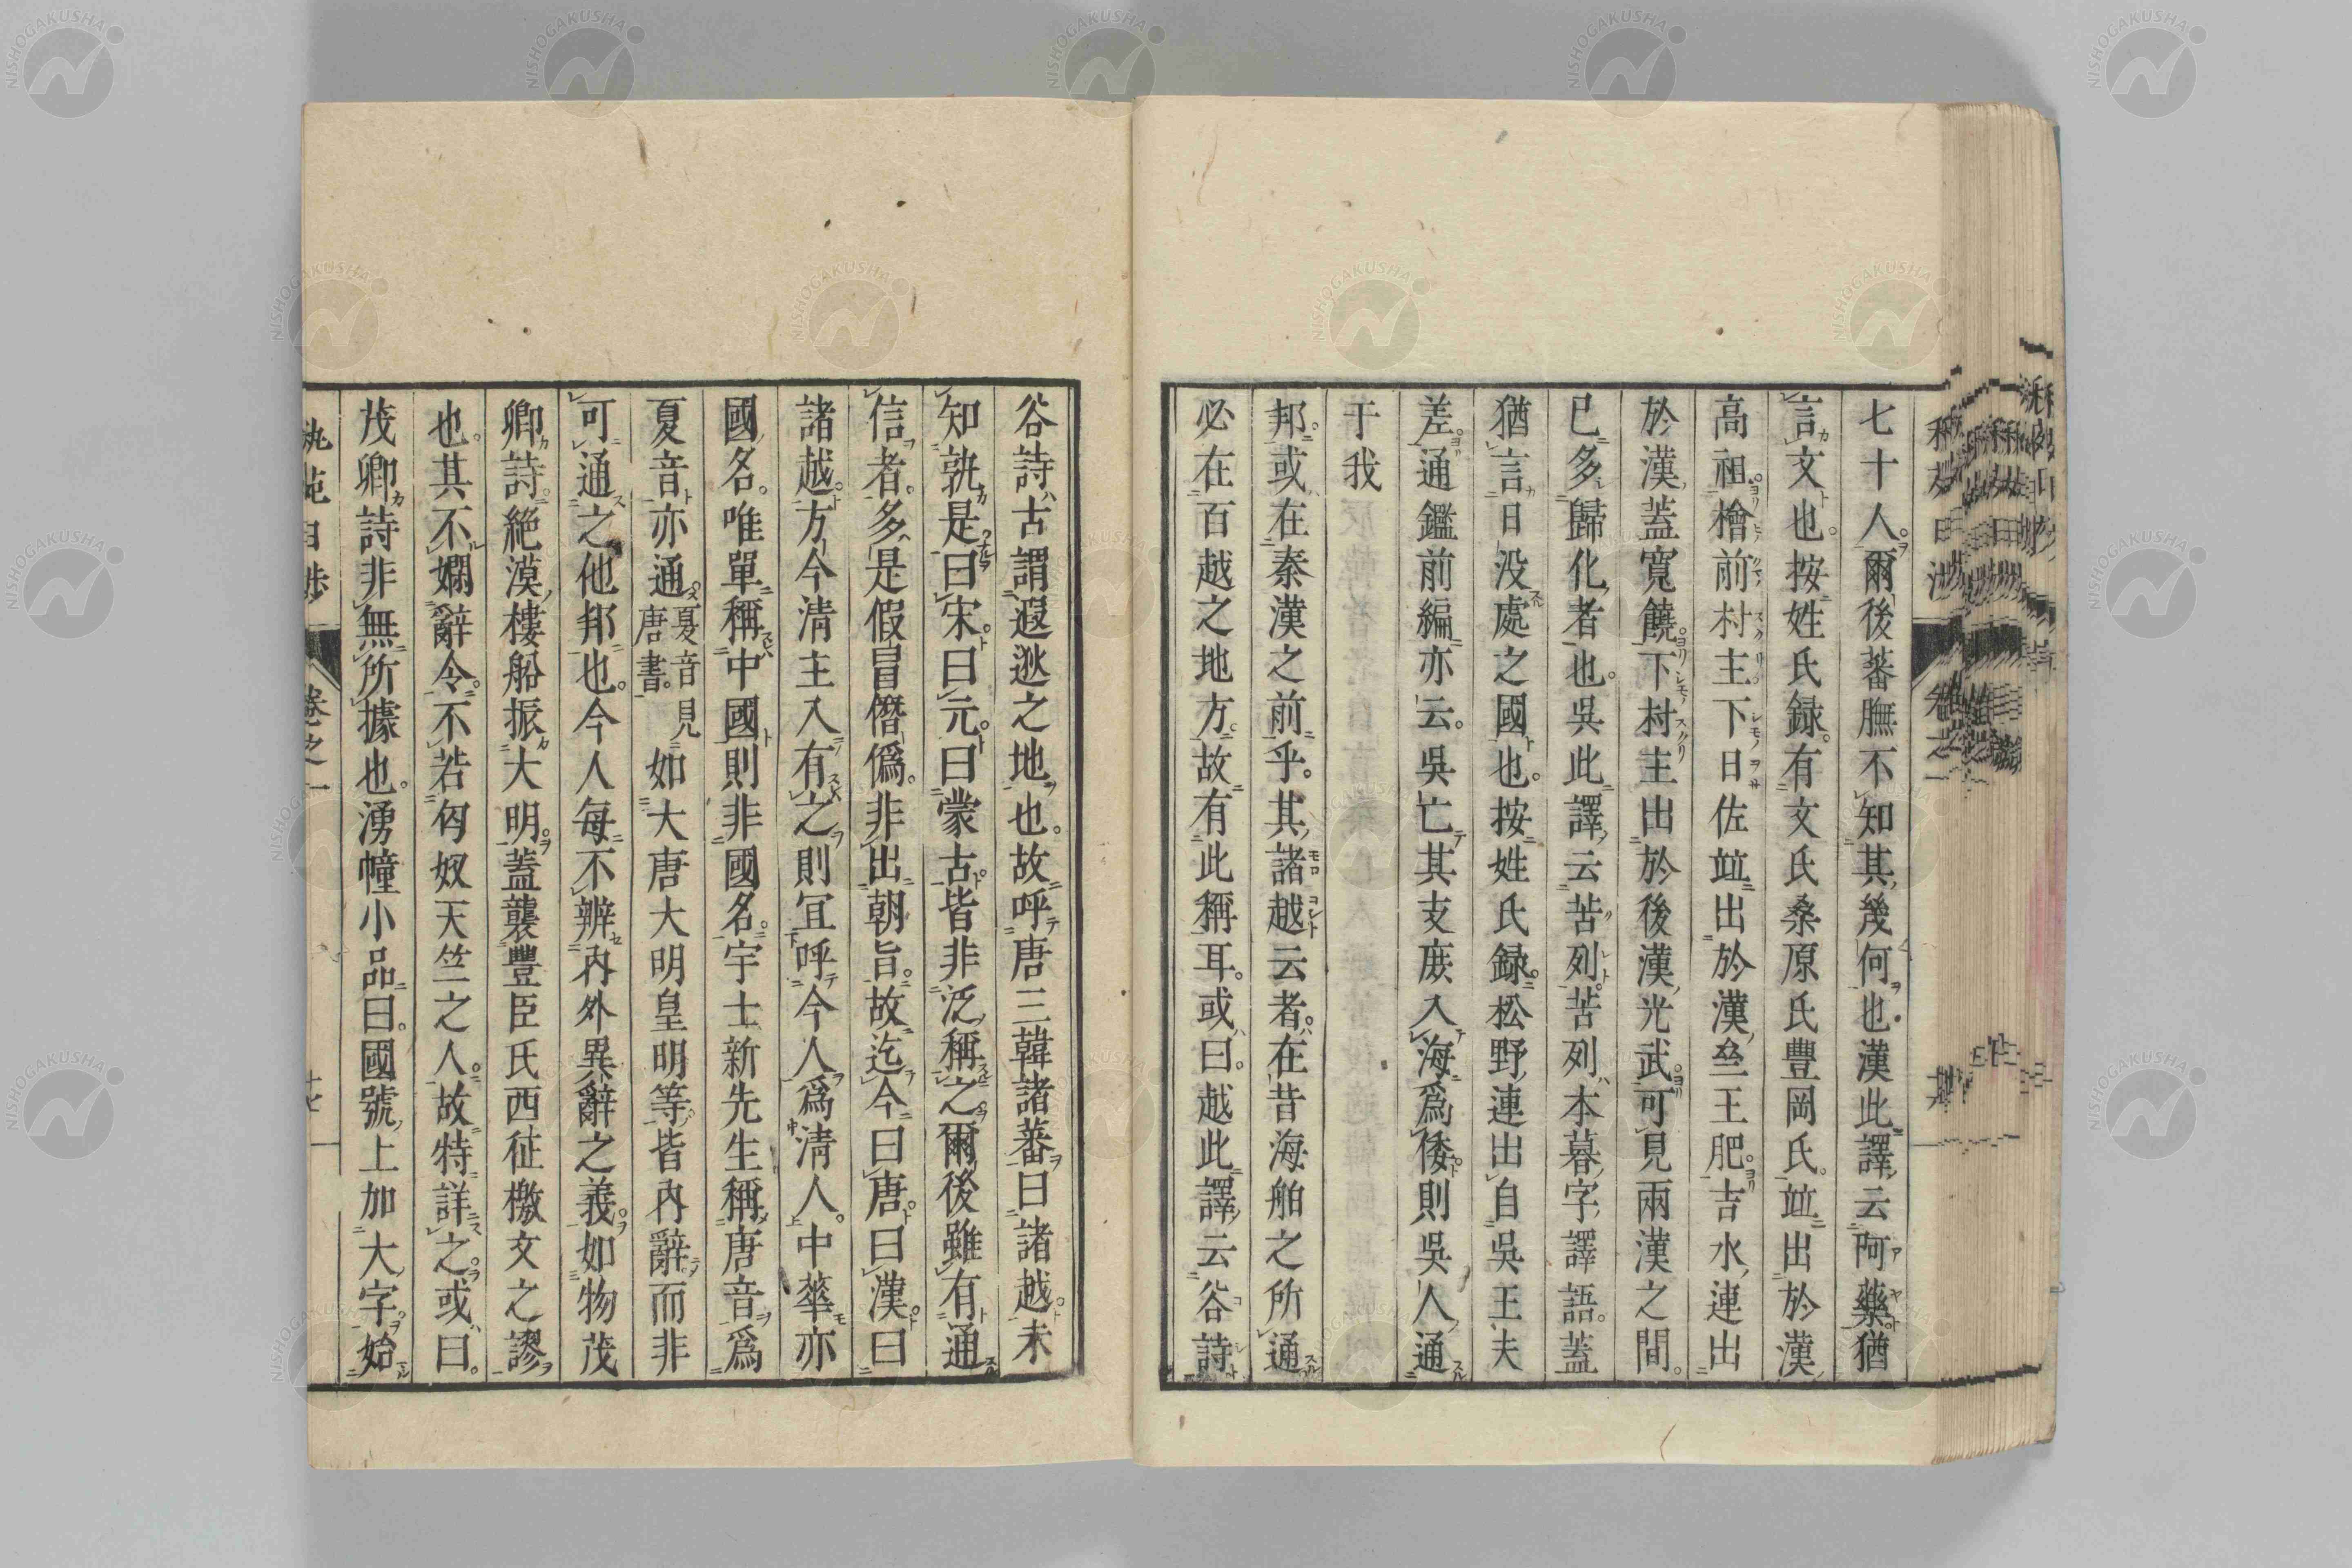 七十人爾後蕃膴不知其幾何也漢此譯云阿藥猶
言文也按姓氏録有文氏桑原氏豐岡氏竝出於漢
高祖檜前村主下日佐竝出於漢亝王肥吉水連出
於漢蓋寬饒下村主出於後漢光武可見兩漢之間
已多歸化者也吳此譯云苦列苦列本暮字譯語蓋
猶言日没處之國也按姓氏録松野連出自吳王夫
差通鑑前編亦云吳亡其支庻入海爲倭則吳人通
于我
邦或在秦漢之前乎其諸越云者在昔海舶之所通
必在百越之地方故有此稱耳或曰越此譯云谷詩
谷詩古謂遐逖之地也故呼唐三韓諸蕃曰諸越未
知孰是曰宋曰元曰蒙古皆非泛稱之爾後雖有通
信者多是假冒僭僞非出朝旨故迄今曰唐曰漢曰
諸越方今清主入有之則宜呼今人爲清人中華亦
國名唯單稱中國則非國名宇士新先生稱唐音爲
夏音亦通夏音見唐書如大唐大明皇明等皆内辭而非
可通之他邦也今人每不辨内外異辭之義如物茂
卿詩絕漠樓船振大明蓋襲豐臣氏西征檄文之謬
也其不嫺辭令不若匈奴天竺之人故特詳之或曰
茂卿詩非無所據也湧幢小品曰國號上加大字始
秇苑日涉 卷之一
NISHOGAKUSHA